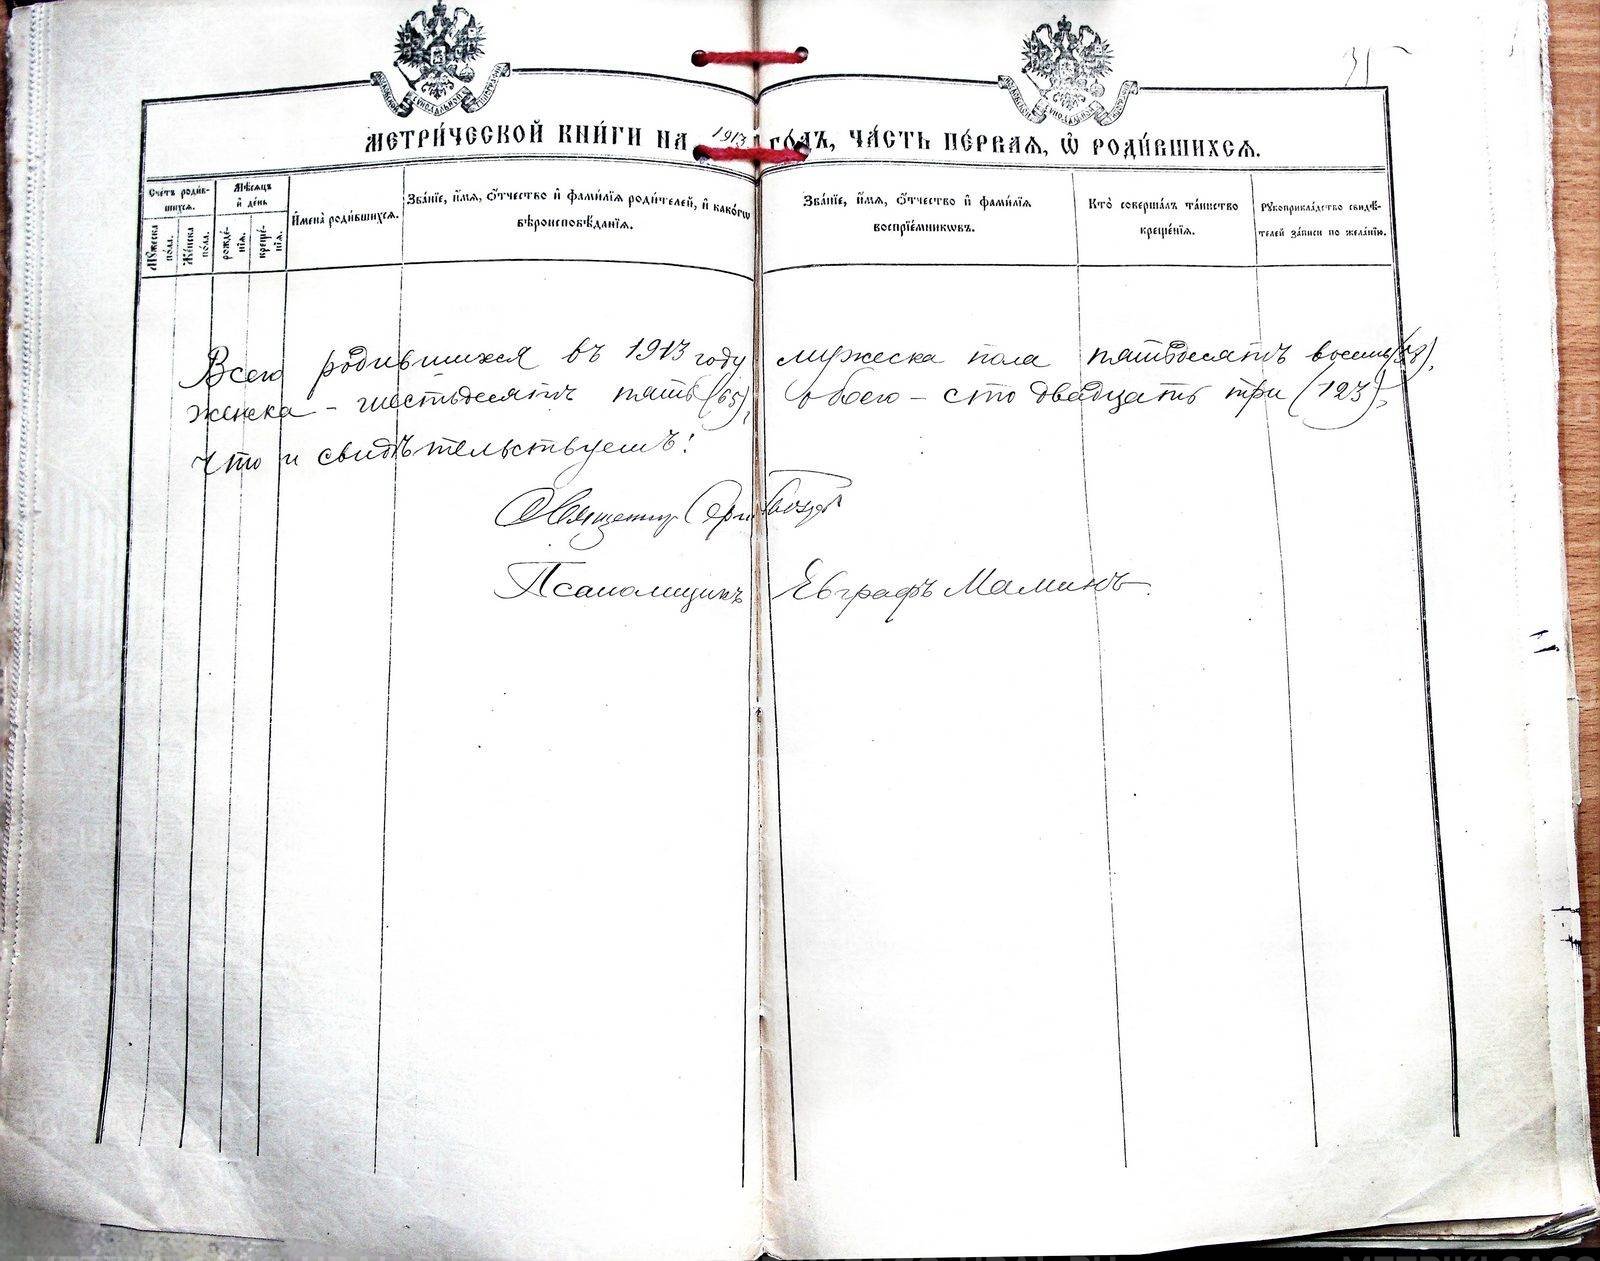 35
МЕТРИ́ЧЕСКОЙ КНИ́ГИ НА 1913 ГО́ДЪ, ЧА́СТЬ ПЕ́РВАЯ, Ѡ РОДИ́ВШИХСЯ.
Сче́тъ роди́в-
шихся.
Мѣ́сяцъ
и́ де́нь
Му́жеска по́ла.
Же́нска по́ла.
рожде́нїя.
креще́нїя.
И҆мена̀ роди́вшихся.
Зва́нїе, и҆́мя, ѻ҆́тчество и҆ фами́лїя роди́телей, и҆ како́гѡ
вѣроисповѣ́данїя.
Зва́нїе, и҆́мя, ѻ҆́тчество и҆ фами́лїя
воспрїе́мникѡвъ.
Кто̀ соверша́лъ та́инство
креще́нїя.
Рꙋкоприкла́дство свидѣ́-
телей за́писи по жела́нїю.
Всего родившихся въ 1913 году мужеска пола пятьдесятъ восемь (58),
женска - шестьдесятъ пять (65), обоего - сто двадцать три (123),
что и свидѣтельствуемъ:
Священникъ Сергій
Псаломщикъ Евграфъ Маминъ.